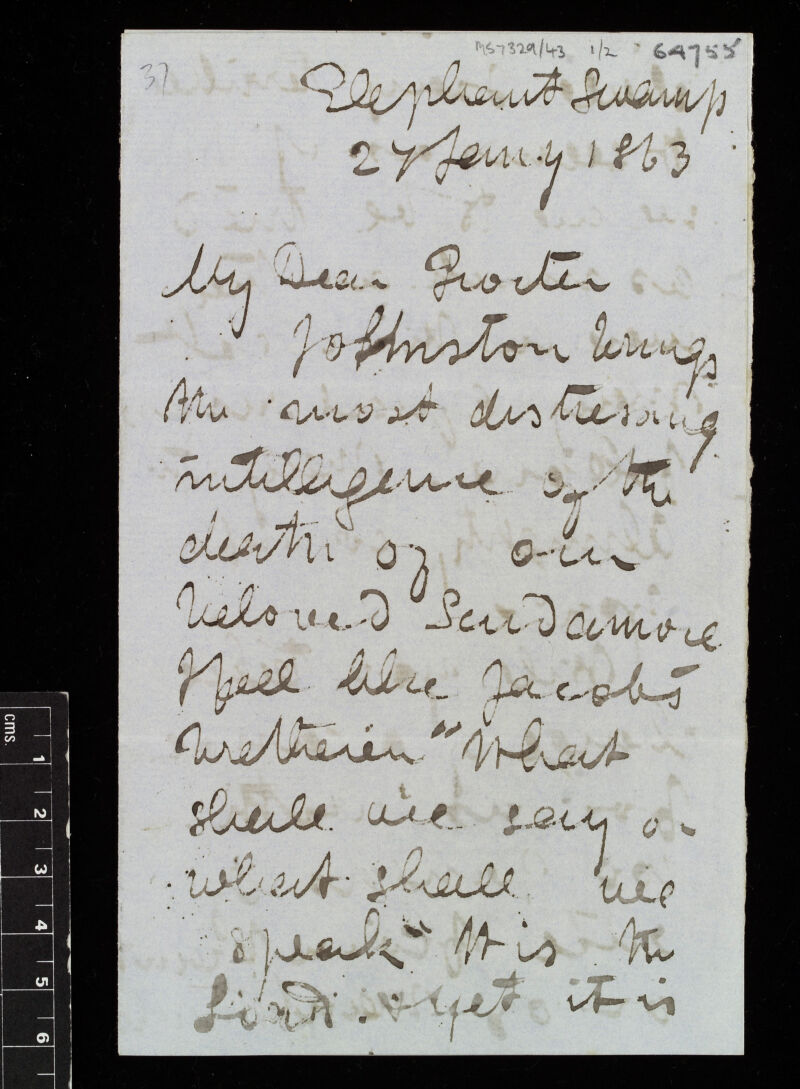 MS7329/43 1/2 64755
37
Elephant Swamp
27 Jany 1863
My Dear Procter
Johnston brings
the most distressing
intelligence of the
death of our
beloved Scudamore
I feel like Jacobs
bretheren "What
shall we say or
what shall we
speak" It is the
Lord. & yet it is
cms.
1
2
3
4
5
6